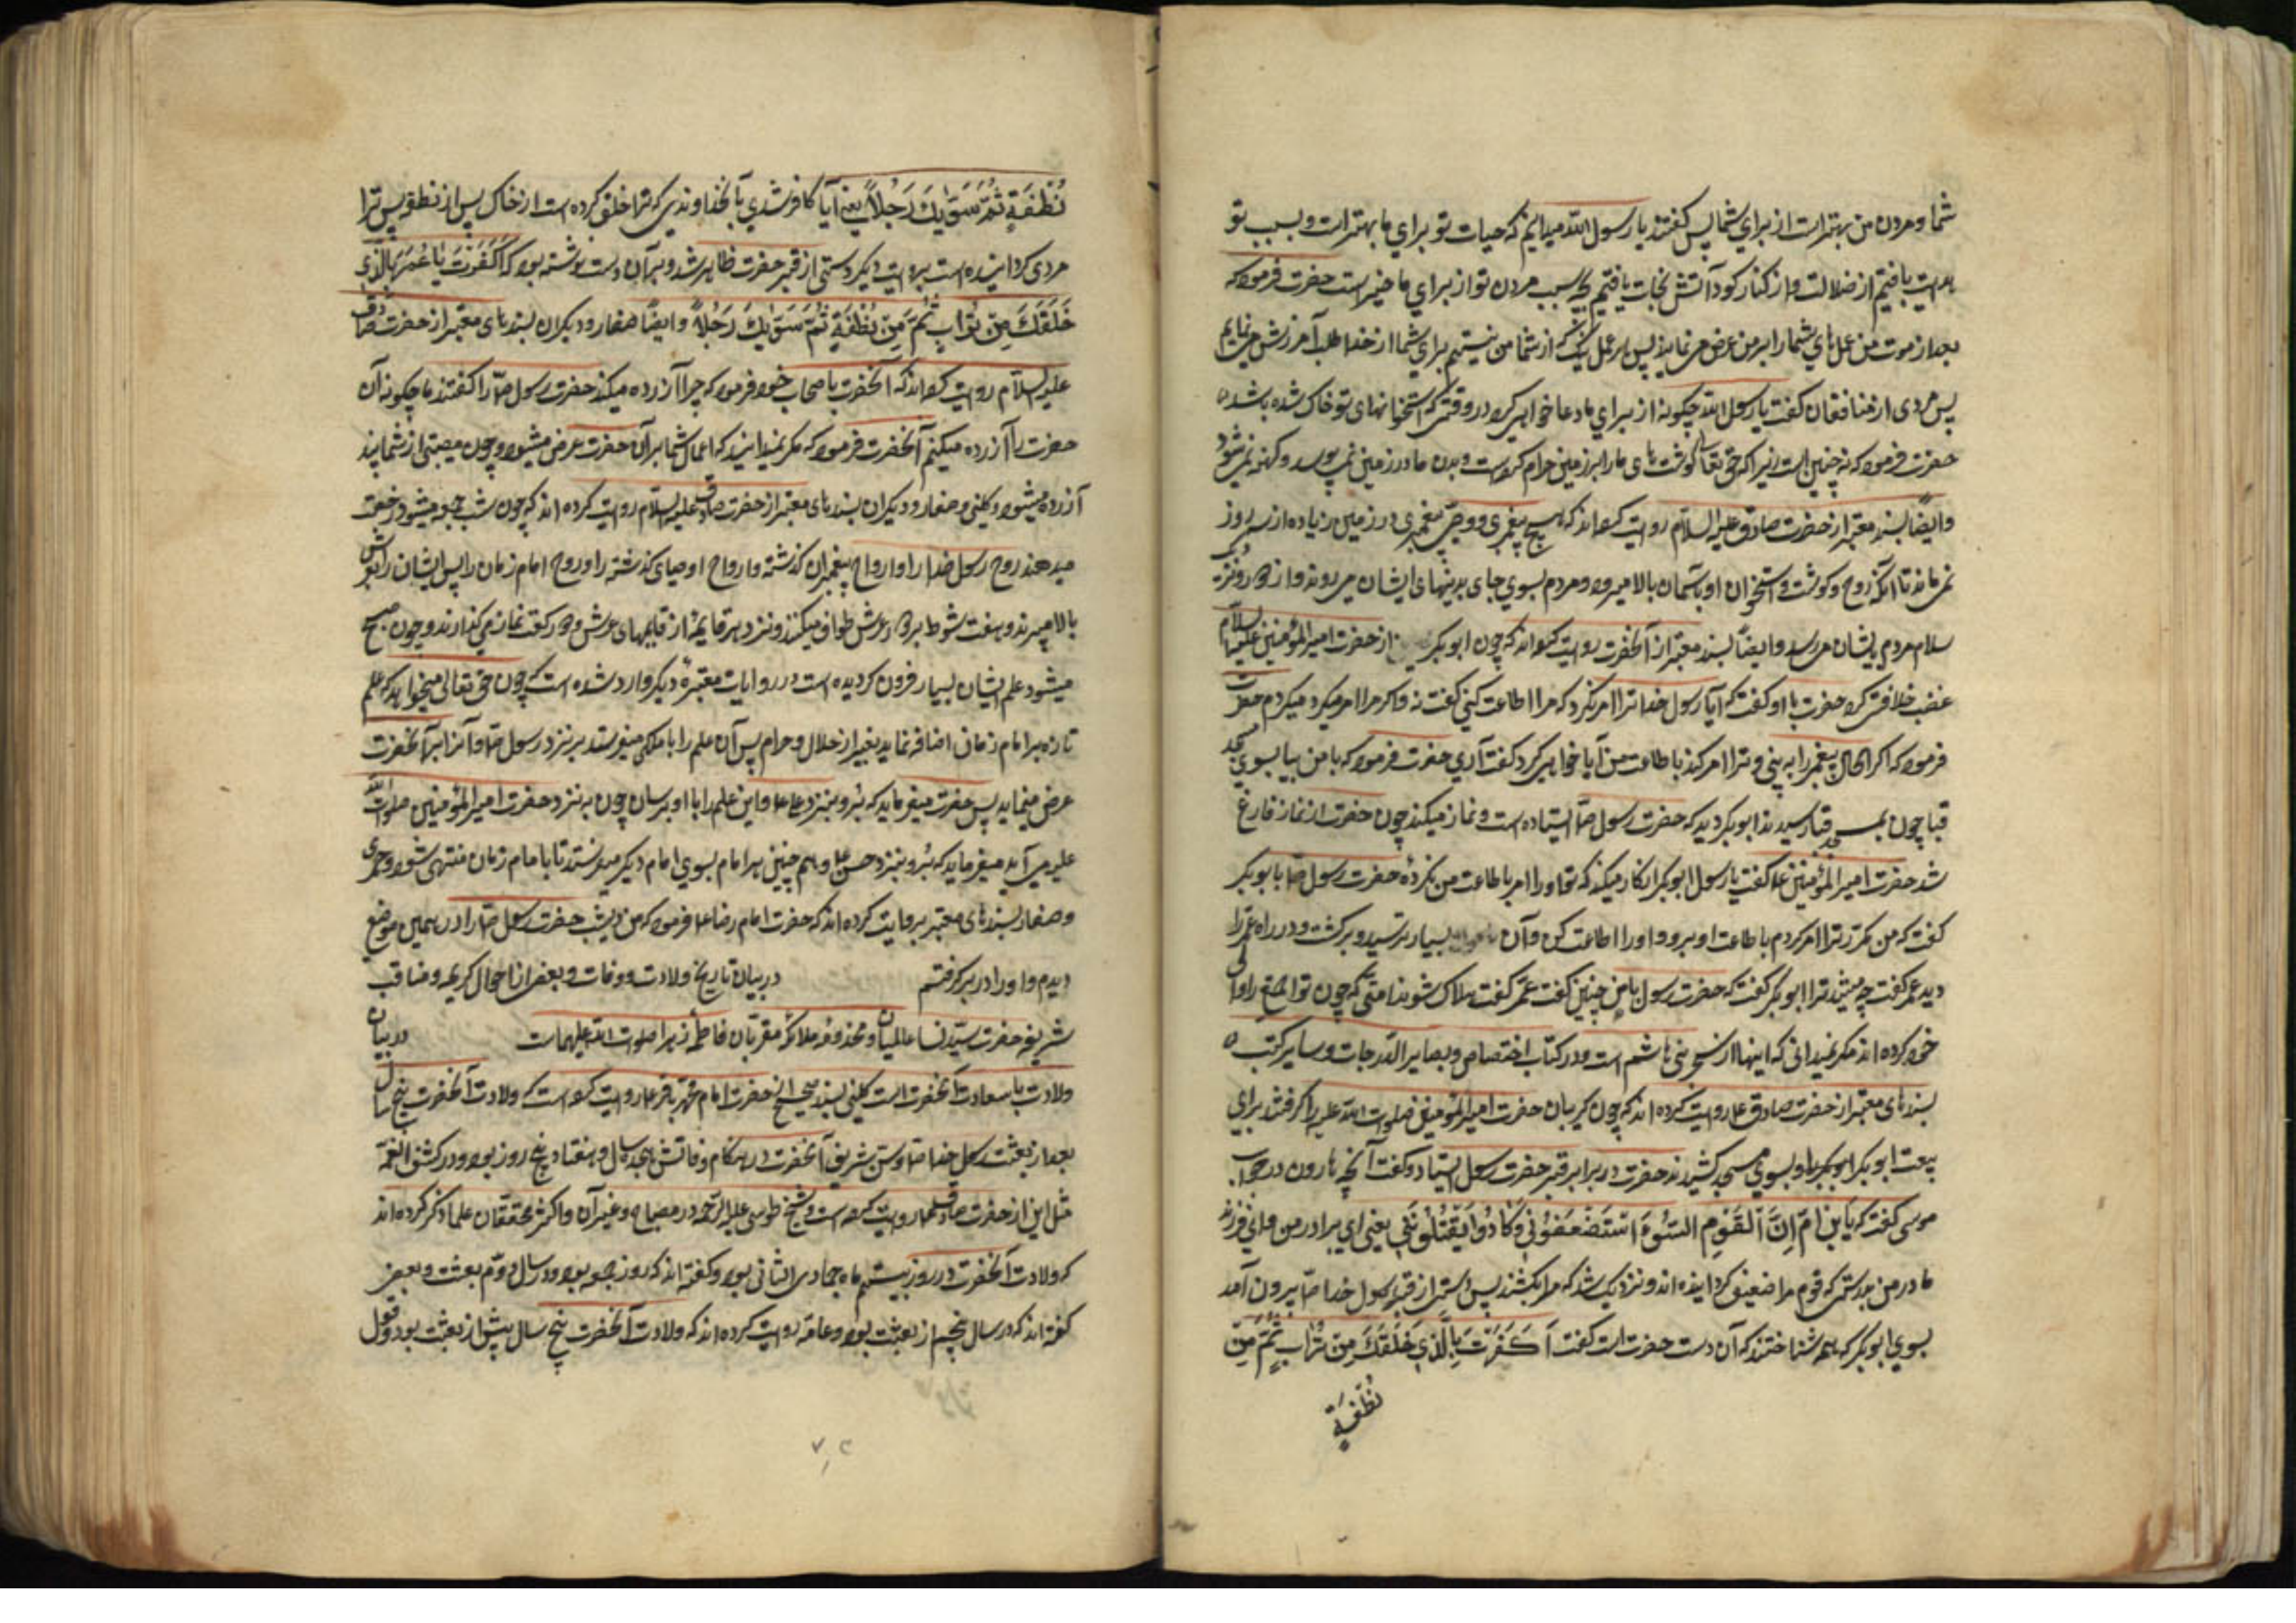 شما و مردن من بهتر است از براي شما پس گفتند يا رسول الله ميدانيم كه حيات تو براي ما بهتر است و بسبب تو
هدايت يافتيم از ضلالت و از كنار گودال آتش نجات يافتيم بچه سبب مردن تو از براي ما خير است حضرت فرمود كه
بعد از موت من عمل هاي شما را بر من عرض مي نمايند پس هر عمل نيك كه از شما مي بينم براي شما از خدا طلب آمرزش مي نمايم
پس مردى از منافقان گفت يا رسول الله چگونه از براي ما دعا خواهى كرد در وقتى كه استخوانهاى تو خاك شده باشد
حضرت فرمود كه نه چنين است زيرا كه حق تعالى گوشت هاى ما را بر زمين حرام كرده است و بدن ما در زمين نمى پوسد و كهنه نمى شود
و ايضاً بسند معتبر از حضرت صادق عليه السلام روايت كرده اند كه هيچ پيغمبرى و وصى پيغمبرى در زمين زياده از سه روز
نمى ماند تا آنكه روح و گوشت و استخوان او بآسمان بالا ميرود و مردم بسوي جاى بدنهاى ايشان مى روند و از دور و نزديك
سلام مردم بايشان مى رسد و ايضاً بسند معتبر از آنحضرت روايت كرده اند كه چون ابو بكر از حضرت امير المؤمنين عليه السلام
غصب خلافت كرد حضرت با او گفت كه آيا رسول خدا ترا امر نكرد كه مرا اطاعت كنى گفت نه و اگر مرا امر ميكرد ميكردم حضرت
فرمود كه اگر الحال پيغمبر را به بينى و ترا امر كند باطاعت من آيا خواهى كرد گفت آري حضرت فرمود كه با من بيا بسوي مسجد
قبا چون بمسجد قبا رسيدند ابو بكر ديد كه حضرت رسول ص ايستاده است و نماز ميكند چون حضرت از نماز فارغ
شد حضرت امير المؤمنين ع گفت يا رسول الله ابو بكر انكار ميكند كه تو او را امر باطاعت من نكرده حضرت رسول ص با ابو بكر
گفت كه من مكرر ترا امر كردم باطاعت او برو و او را اطاعت كن و آن بسيار ترسيد و برگشت و در راه عمر را
ديد عمر گفت چه ميشد ترا ابو بكر گفت كه حضرت رسول با من چنين گفت عمر گفت هلاك شوند امتى كه چون تو احمقى را والى
خود كرده اند مگر نميدانى كه اينها از سحر بنى هاشم است و در كتاب اختصاص و بصاير الدرجات و ساير كتب
بسندهاى معتبر از حضرت صادق ع روايت كرده اند كه چون گريبان حضرت امير المؤمنين صلوات الله عليه را گرفتند براي
بيعت ابو بكر و بسوي مسجد كشيدند حضرت در برابر قبر حضرت رسول ايستاد و گفت آنچه هارون در جواب
موسى گفت كه يا بن امّ انّ القوم استضعفوني و كادوا يقتلونني يعنى اي برادر من و اي فرزند
مادر من بدرستى كه قوم مرا ضعيف گردانيده اند و نزديك شد كه مرا بكشند پس دستى از قبر رسول خدا ص بيرون آمد
بسوي ابو بكر كه همه شناختند كه آن دست حضرت است گفت اَكَفَرْتَ بِالَّذي خَلَقَكَ مِنْ تُرابٍ ثُمَّ مِنْ
نُطْفَةٍ
نُطْفَةٍ ثُمَّ سَوّيكَ رَجُلاً يعنى آيا كافر شدي بآنخداوندي كه ترا خلق كرده است از خاك پس از نطفه پس ترا
مردى گردانيده است بروايت ديگر دستى از قبر حضرت ظاهر شد و بر آن دست نوشته بود كه اَكَفَرْتَ يا عُمَرُ بِالَّذي
خَلَقَكَ مِنْ تُرابٍ ثُمَّ مِنْ نُطْفَةٍ ثُمَّ سَوّيكَ رَجُلاً و ايضاً صفار و ديگران بسندهاى معتبر از حضرت صادق
عليه السلام روايت كرده اند كه آنحضرت باصحاب خود فرمود كه چرا آزرده ميكنيد حضرت رسول ص را گفتند ما چگونه آن
حضرت را آزرده ميكنيم آنحضرت فرمود كه مگر نميدانيد كه اعمال شما بر آن حضرت عرض ميشود و چون معصيتى از شما بيند
آزرده ميشود و كلينى و صفار و ديگران بسندهاى معتبر از حضرت صادق عليه السلام روايت كرده اند كه چون شب جمعه ميشود رخصت
ميدهند روح رسول خدا را و ارواح پيغمبران گذشته و ارواح اوصياى گذشته را و روح امام زمان را پس ايشان را بعرش
بالا ميبرند و هفت شوط بر دور عرش طواف ميكنند و نزد هر قايمه از قايمهاى عرش دو ركعت نماز مى گذارند و چون صبح
ميشود علم ايشان بسيار فزون گرديده است در روايات معتبرهٔ ديگر وارد شده است كه چون حق تعالى ميخواهد كه علم
تازه بر امام زمان اضافه نمايد بغير از حلال و حرام پس آن علم را با ملكى ميفرستد بر نزد رسول ص و آنرا بر آنحضرت
عرض مينمايد پس حضرت ميفرمايد كه برو بنزد على ع و اين علم را با او برسان چون به نزد حضرت امير المؤمنين صلوات الله
عليه مى آيد ميفرمايد كه برو بنزد حسن ع و هم چنين هر امام بسوي امام ديگر ميفرستد تا بامام زمان منتهى شود و حميرى
و صفار بسندهاى معتبر روايت كرده اند كه حضرت امام رضا ع فرمود كه من ديشب حضرت رسول ص را در همين موضع
ديدم و او را در بر گرفتم در بيان تاريخ ولادت و وفات و بعضى از احوال كريمه و مناقب
شريفه حضرت سيّد نساء عالميان و مخدومه ملائكه مقرّبان فاطمه زهرا صلوات الله عليها است در بيان
ولادت با سعادت آنحضرت است كلينى بسند صحيح از حضرت امام محمد باقر ع روايت كرده است كه ولادت آنحضرت پنج سال
بعد از بعثت رسول خدا ص و سنّ شريف آنحضرت در هنگام وفاتش هيجده سال و هفتاد و پنج روز بود و در كشف الغمّه
مثل اين از حضرت صادق ع روايت كرده است و شيخ طوسى عليه الرّحمه در مصباح و غير آن و اكثر محققان علما ذكر كرده اند
كه ولادت آنحضرت در روز بيستم ماه جمادى الثانى بود و گفته اند كه روز جمعه بود در سال دوّم بعثت و بعضى
گفته اند كه در سال پنجم از بعثت بود و عامّه روايت كرده اند كه ولادت آنحضرت پنج سال پيش از بعثت بود و قول